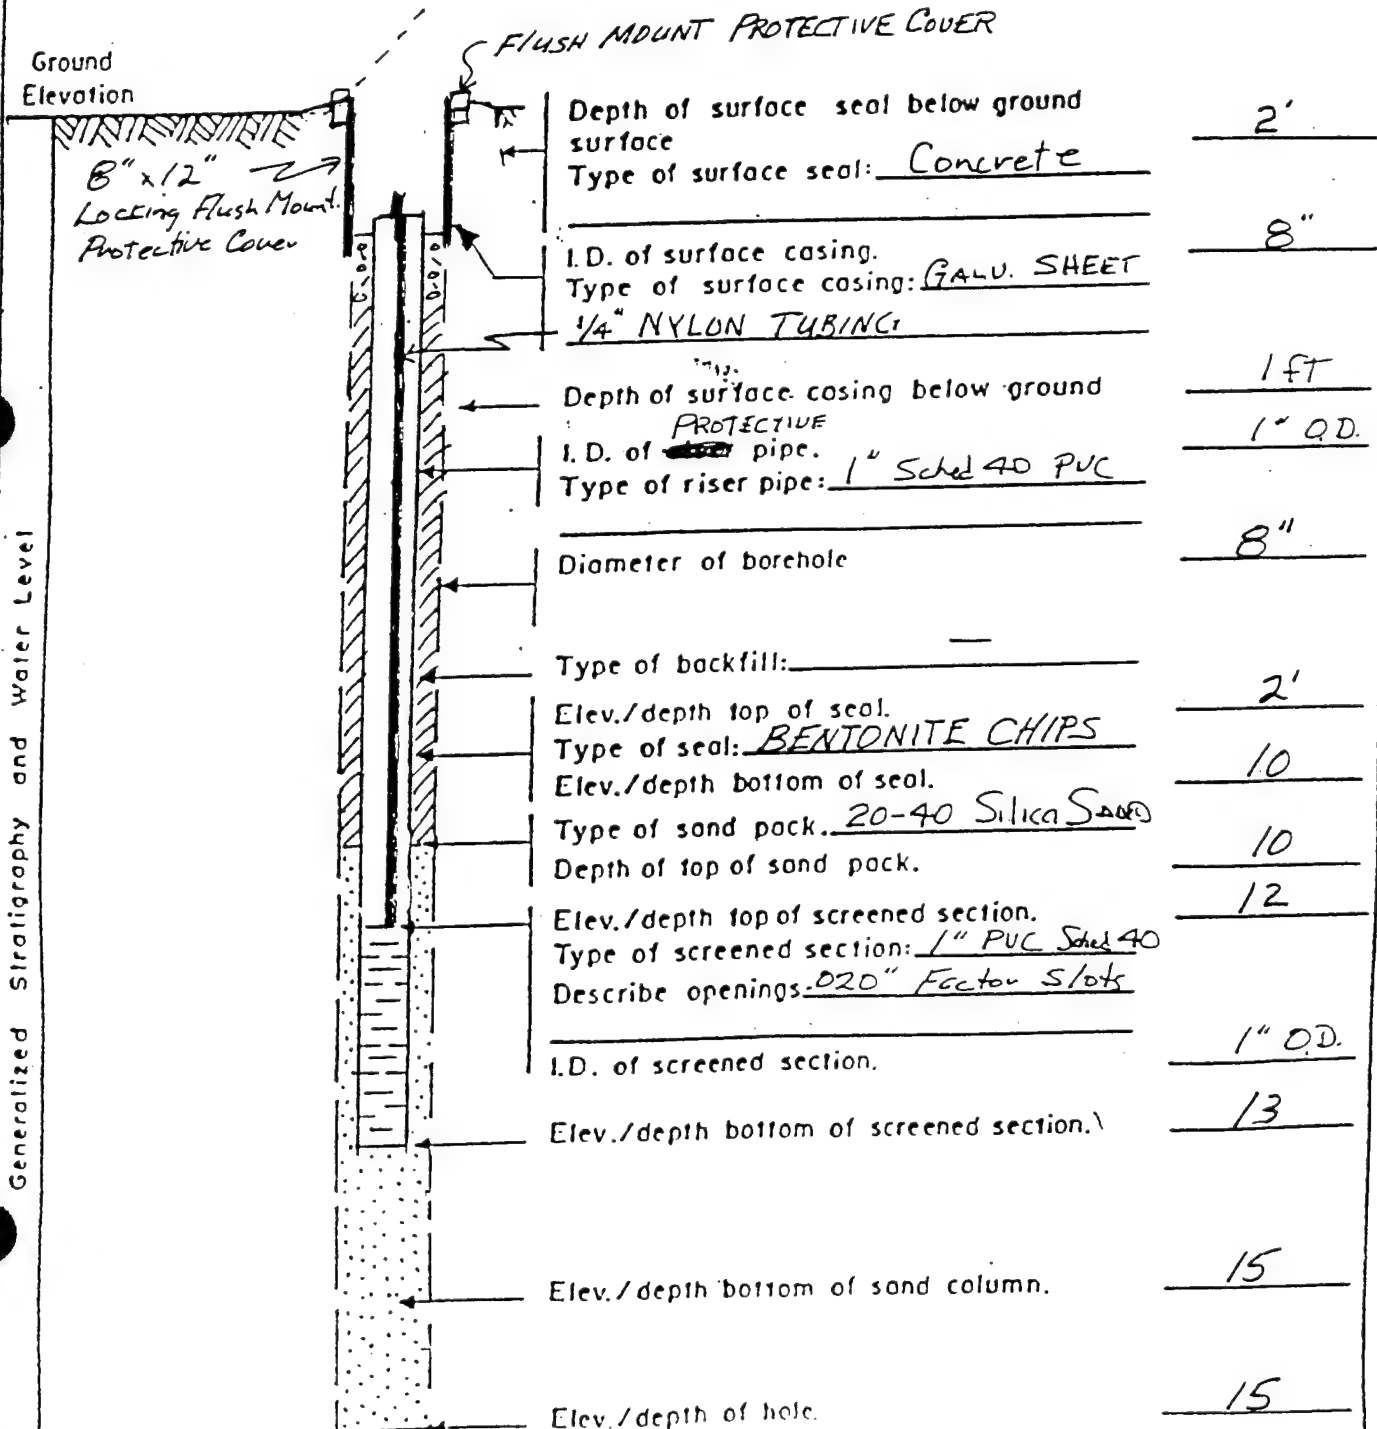 FLUSH MOUNT PROTECTIVE COVER
Ground
Elevation
8" x 12"
Locking Flush Mount
Protective Cover
Generalized Stratigraphy and Water Level
Depth of surface seal below ground
surface 2'
Type of surface seal: Concrete
I.D. of surface casing. 8"
Type of surface casing: GALV. SHEET
1/4" NYLON TUBING
Depth of surface casing below ground 1 FT
PROTECTIVE
I.D. of pipe. 1" O.D.
Type of riser pipe: 1" Sched 40 PVC
Diameter of borehole 8"
Type of backfill: —
Elev./depth top of seal. 2'
Type of seal: BENTONITE CHIPS
Elev./depth bottom of seal. 10
Type of sand pack. 20-40 Silica SAND
Depth of top of sand pack. 10
Elev./depth top of screened section. 12
Type of screened section: 1" PVC Sched 40
Describe openings. .020" Slots
I.D. of screened section. 1" O.D.
Elev./depth bottom of screened section. 13
Elev./depth bottom of sand column. 15
Elev./depth of hole. 15